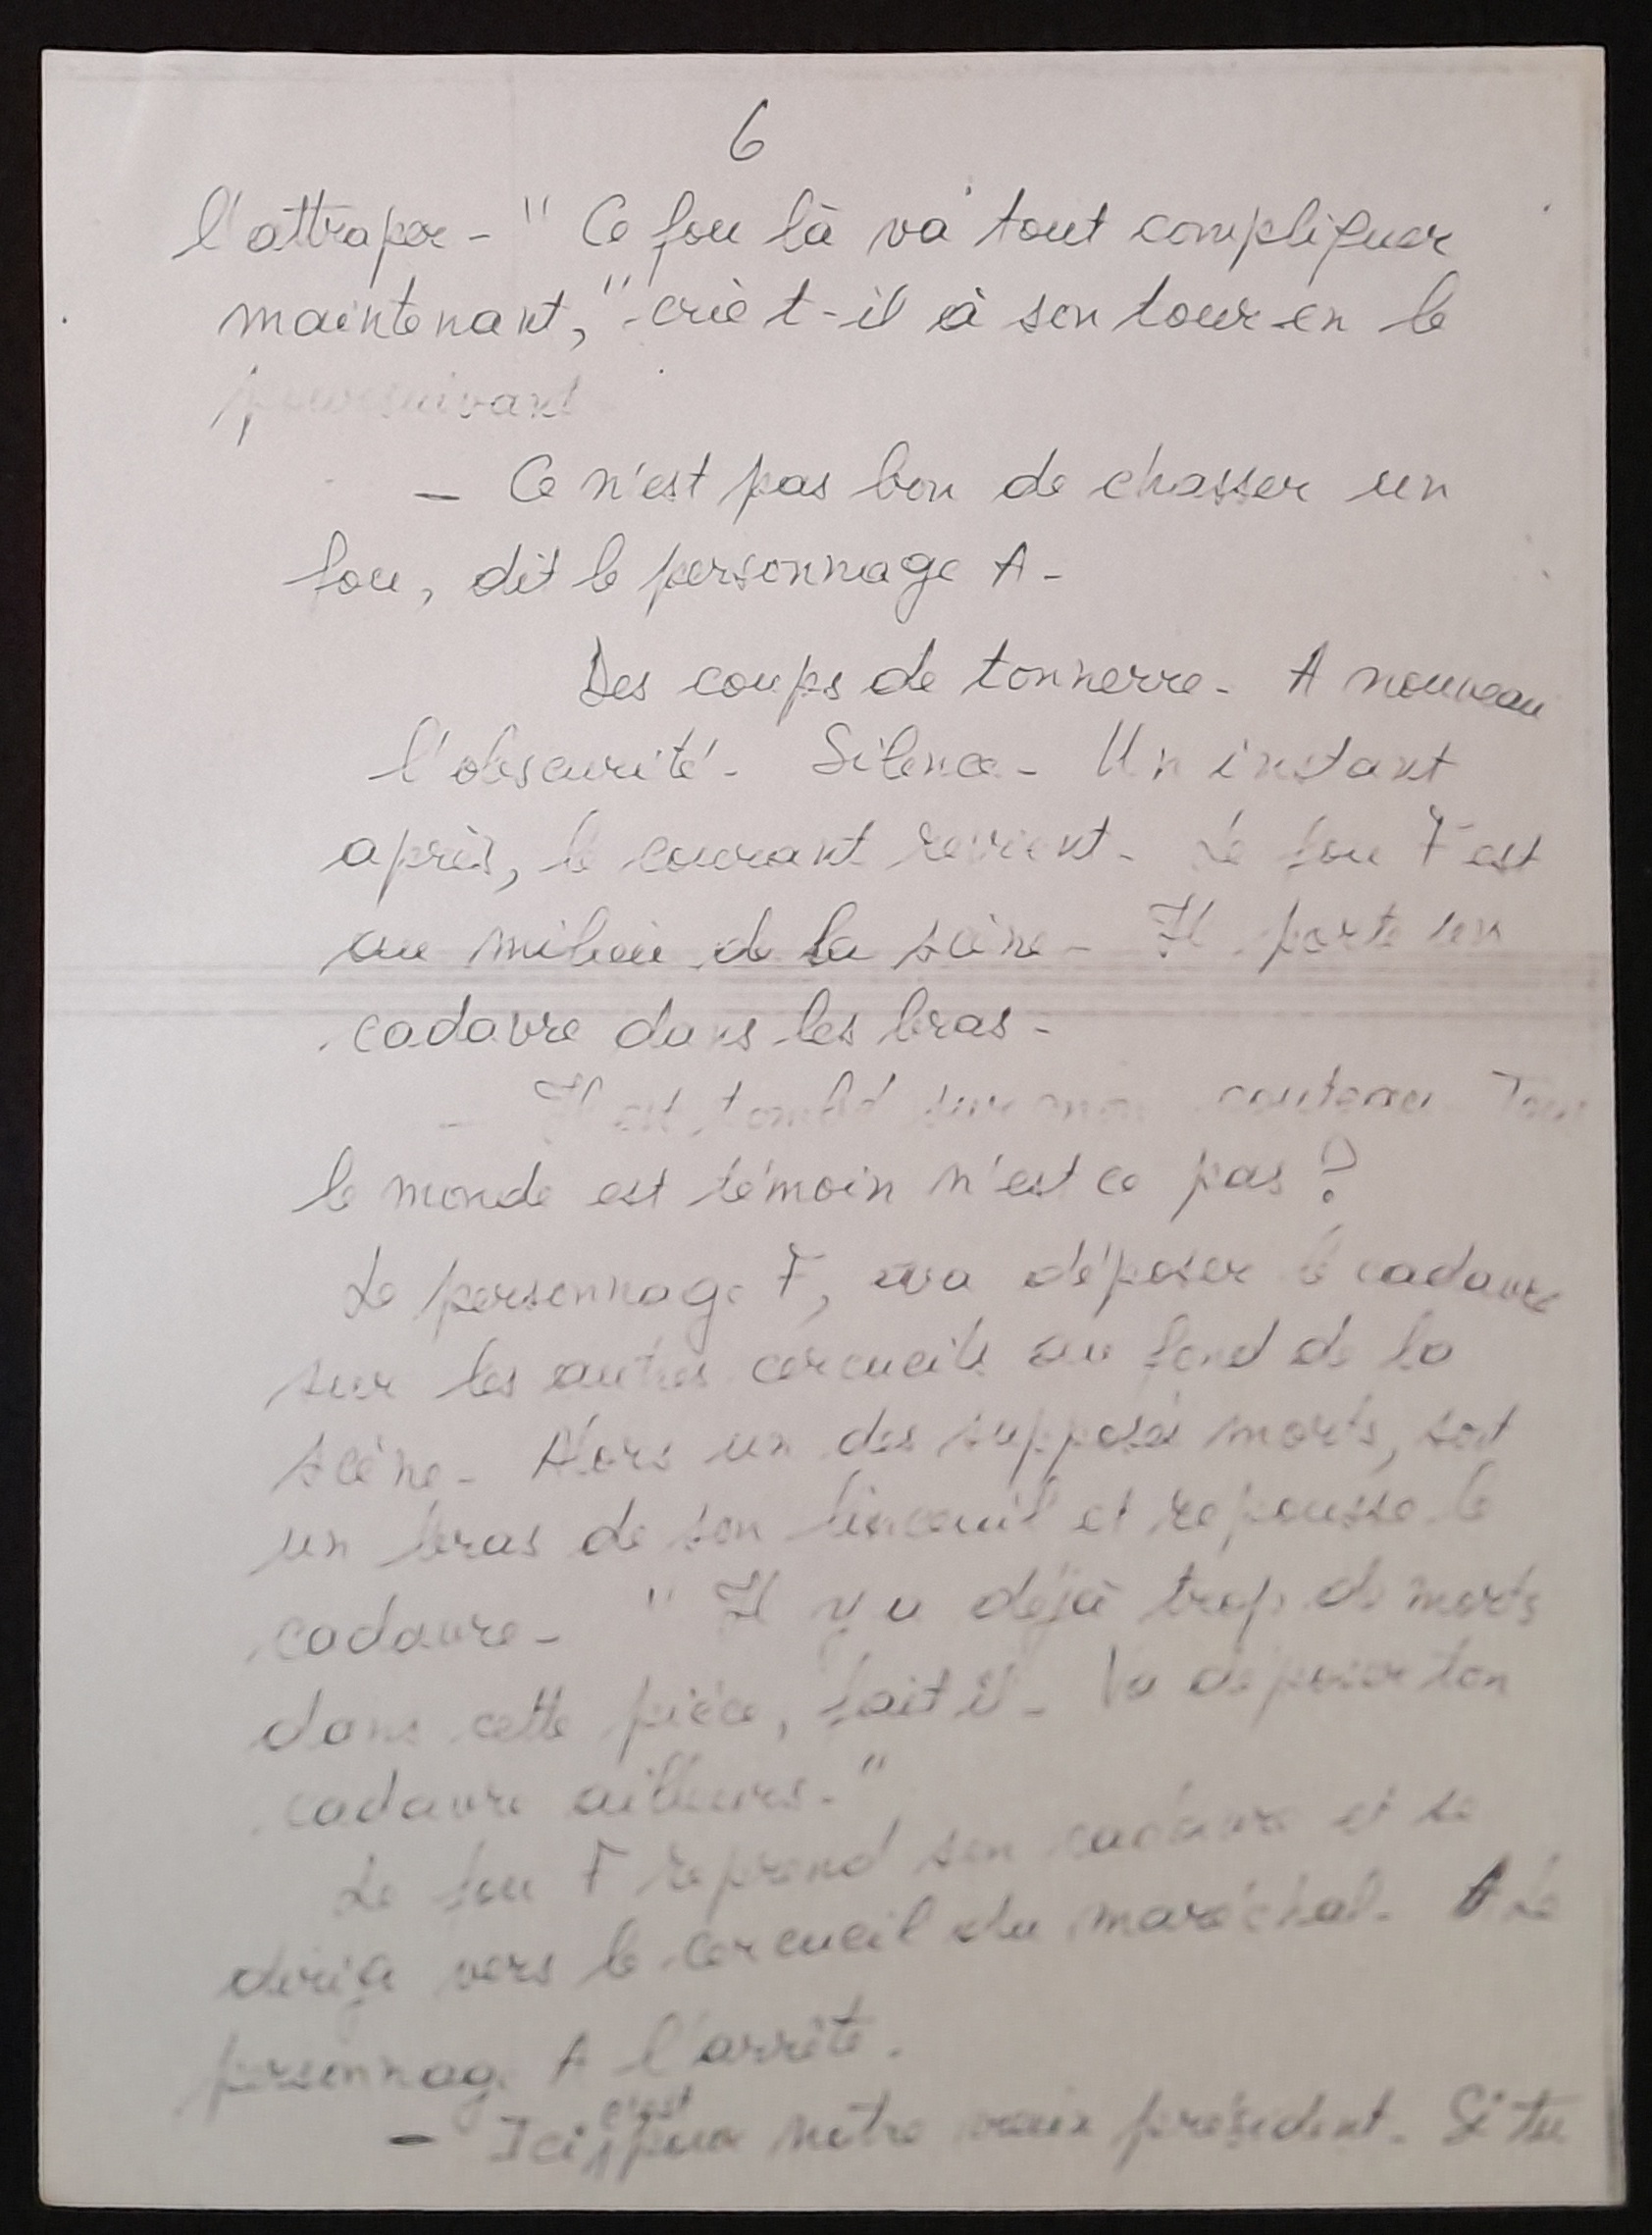 6
l'attraper - " Ce fou là va tout compliquer
maintenant, " crie t-il à son tour en le
poursuivant
- Ce n'est pas bon de chasser un
fou, dit le personnage A -
Des coups de tonnerre - A nouveau
l'obscurité - Silence - Un instant
après, le courant revient - Le fou F est
au milieu de la scène - Il porte un
cadavre dans les bras -
- Il est tombé sur mon couteau Tout
le monde est témoin n'est ce pas ?
Le personnage F, va déposer le cadavre
sur les autres cercueils au fond de la
scène - Alors un des supposés morts, sort
un bras de son linceuil et repousse le
cadavre - " Il y a déjà trop de morts
dans cette pièce, fait il - Va déposer ton
cadavre ailleurs. "
Le fou F reprend son cadavre et se
dirige vers le cercueil du maréchal - Le
personnage A l'arrête.
- Ici, c'est pour notre vrai président - Si tu